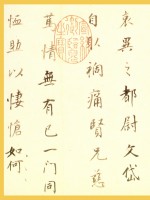 哀異之都尉文岱
自取禍痛賢兄慈
篤情無有已一门同
恤助以悽愴如何